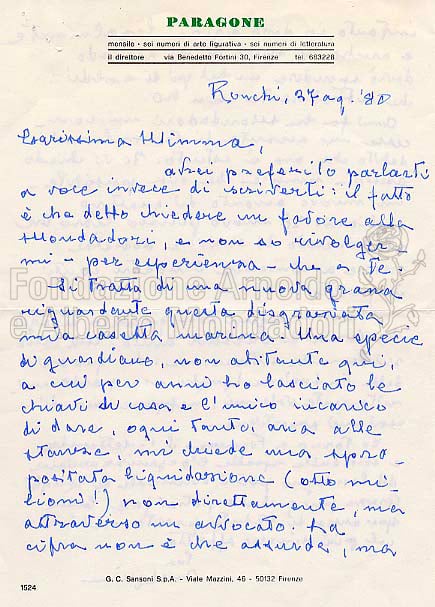 PARAGONE
mensile - sei numeri di arte figurativa - sei numeri di letteratura
il direttore via Benedetto Fortini 30, Firenze tel. 683228
Ronchi, 27 ag. '80
Carissima Mimma,
avrei preferito parlarti
a voce invece di scriverti: il fatto
è che debbo chiedere un favore alla
Mondadori, e non so rivolger-
mi - per esperienza - che a Te.
Si tratta di una nuova grana
riguardante questa disgraziata
mia casetta marina. Una specie
di guardiano, non abitante qui,
a cui per anni ho lasciato le
chiavi di casa e l'unico incarico
di dare, ogni tanto, aria alle
stanze, mi chiede una spro-
positata liquidazione (otto mi-
lioni!) non direttamente, ma
attraverso un avvocato. La
cifra non è che assurda, ma
Fondazione Arnoldo
e Alberto Mondadori
G. C. Sansoni S.p.A. - Viale Mazzini, 46 - 50132 Firenze
1524